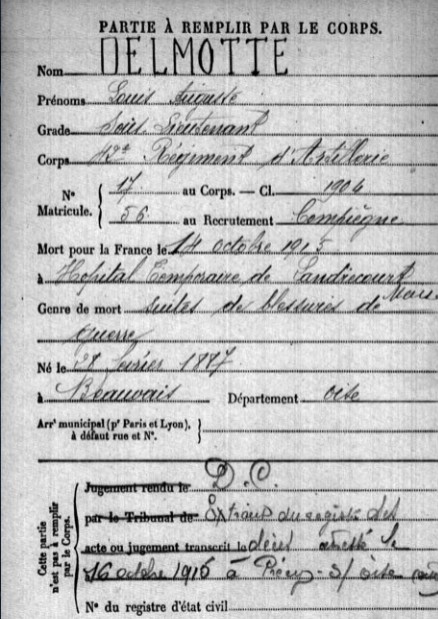 PARTIE À REMPLIR PAR LE CORPS.
Nom DELMOTTE
Prénoms Louis Auguste
Grade Sous-Lieutenant
Corps 42e Régiment d'Artillerie
N° Matricule. 17 au Corps. — Cl. 1904
56 au Recrutement Compiègne
Mort pour la France le 14 octobre 1915
à Hopital Temporaire de Landrecourt Meuse
Genre de mort suites de blessures de
guerre
Né le février 1887
à Beauvais Département oise
Arrt municipal (pr Paris et Lyon),
à défaut rue et N°.
Cette partie n'est pas à remplir par le Corps.
Jugement rendu le D.C.
par le Tribunal de Extrait du registre des
acte ou jugement transcrit le décès le
16 octobre 1916 à Précy-s/ oise
N° du registre d'état civil